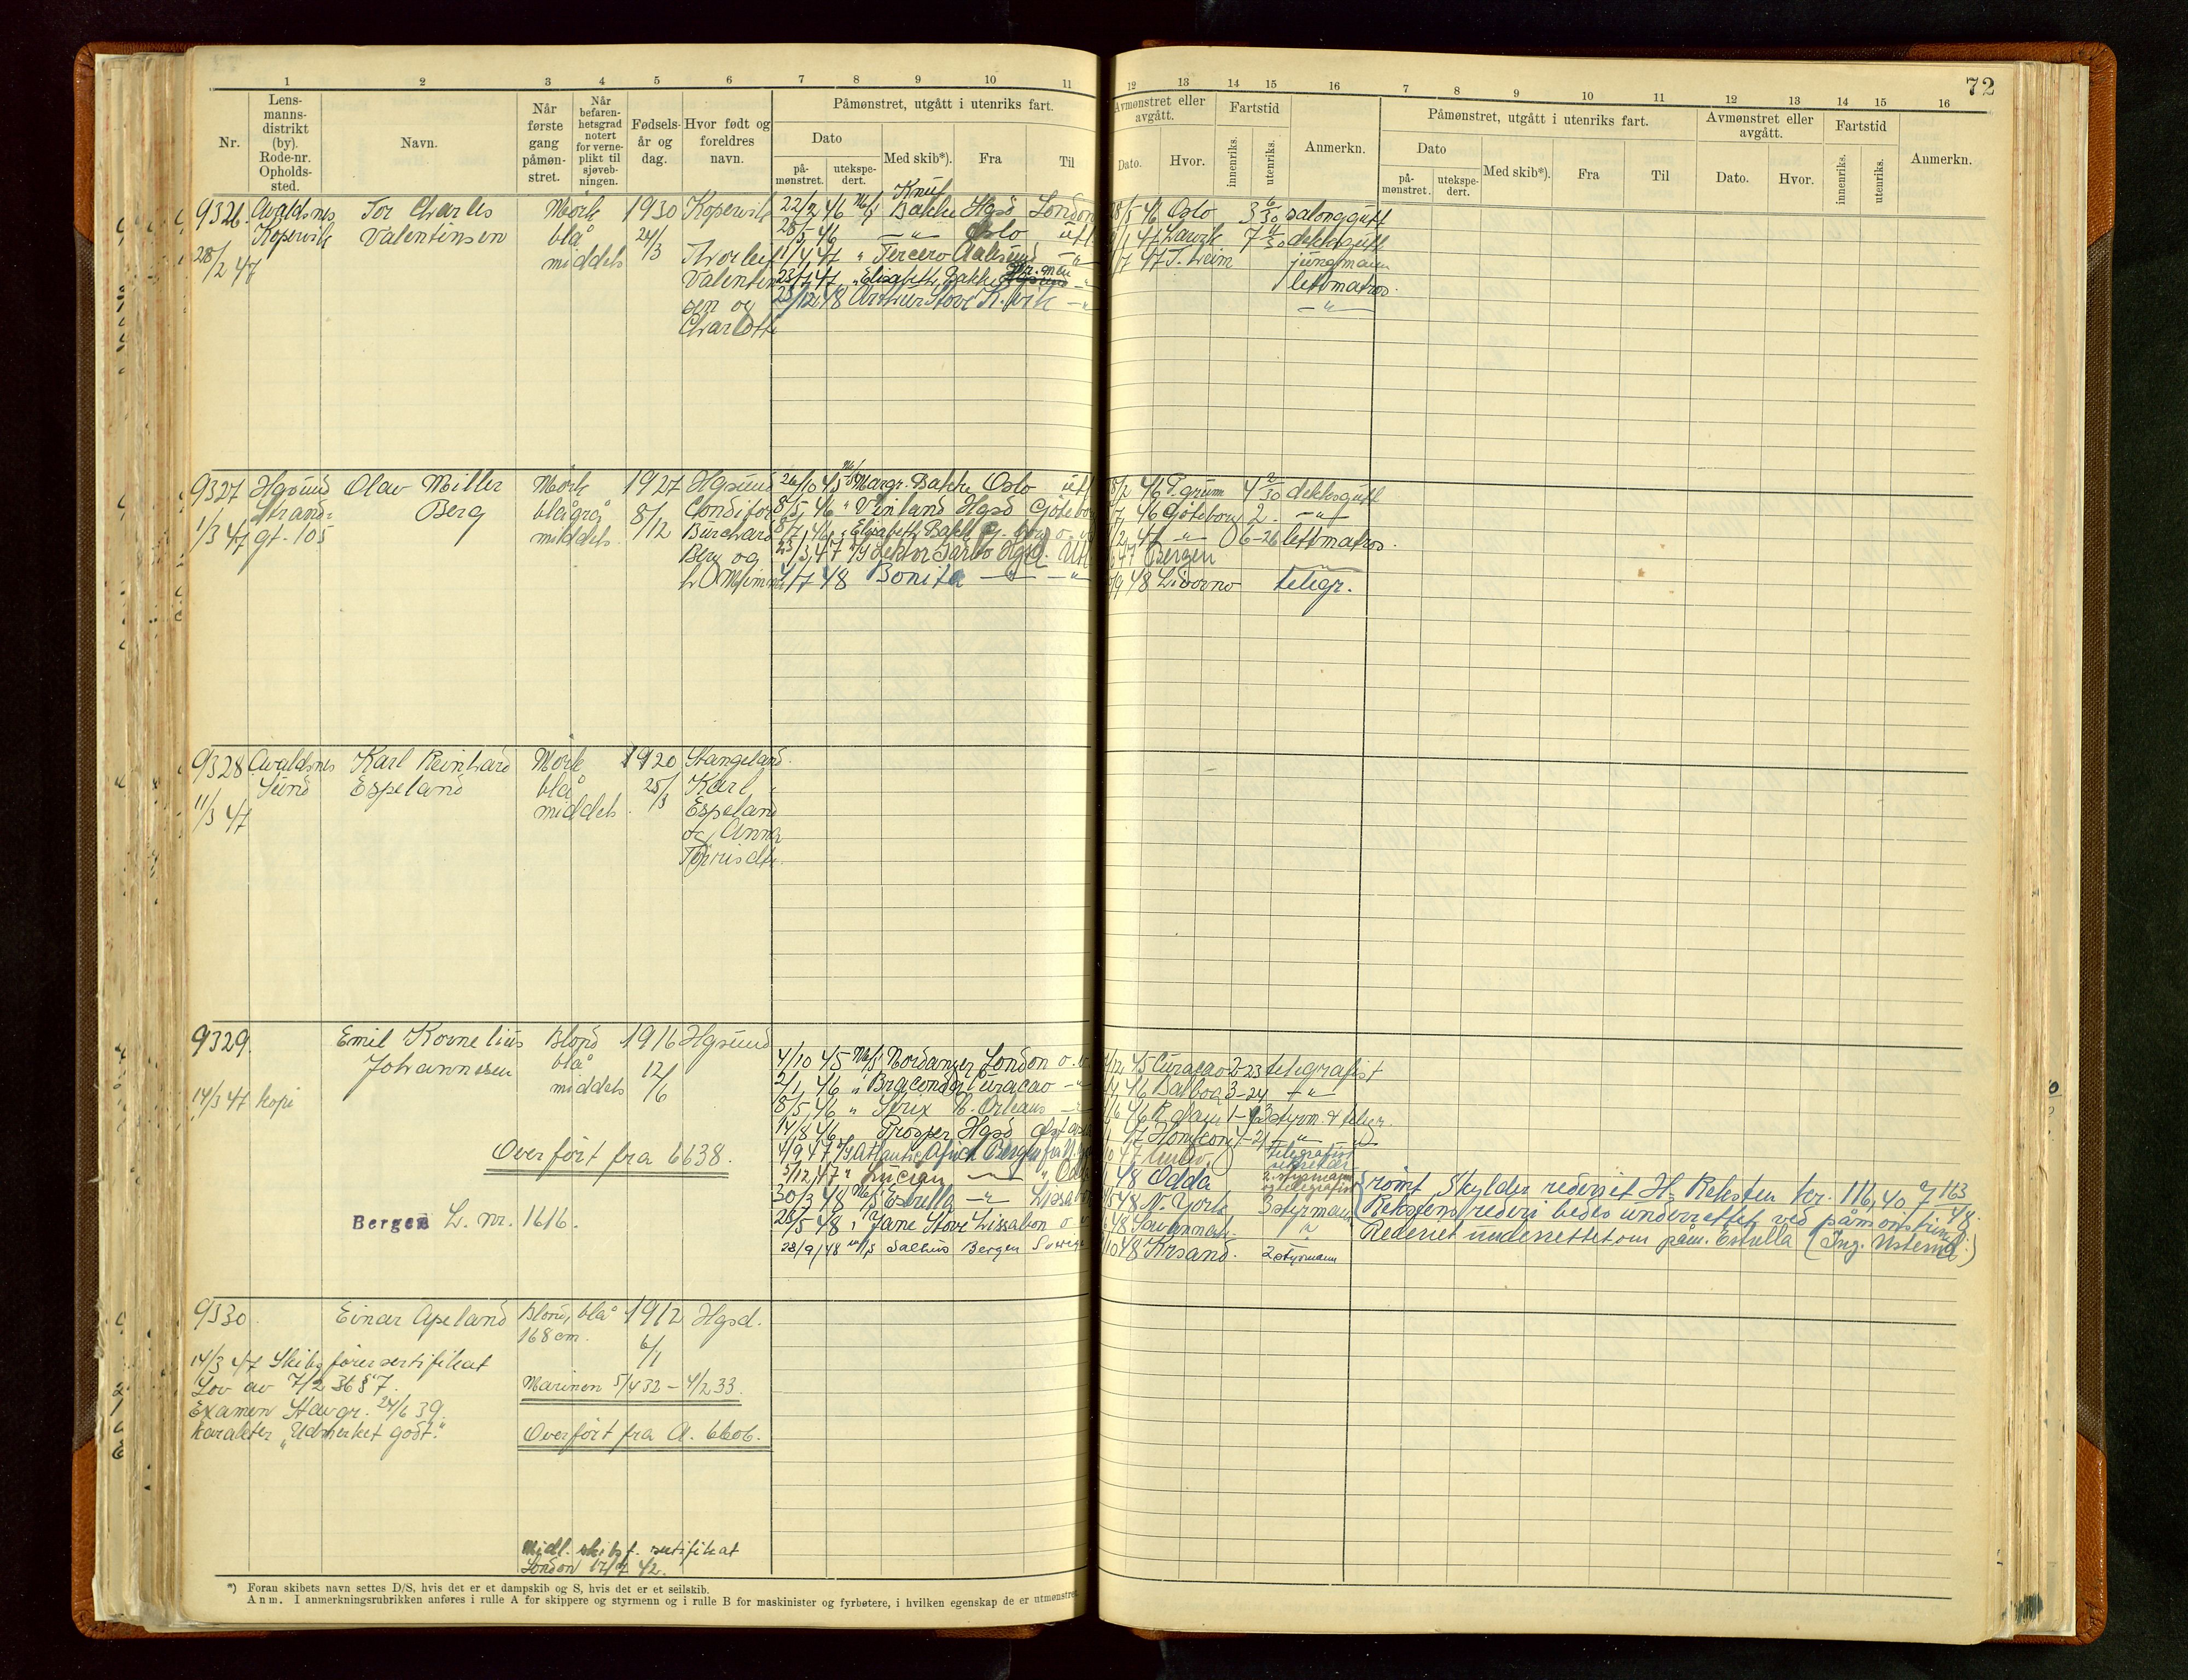 72
1 2 3 4 5 6 7 8 9 10 11 12 13 14 15 16 7 8 9 10 11 12 13 14 15 16
Nr.
Lens-
manns-
distrikt
(by).
Rode-nr.
Opholds-
sted.
Navn.
Når
første
gang
påmøn-
stret.
Når
befaren-
hetsgrad
notert
for verne-
plikt til
sjøveb-
ningen.
Fødsels-
år og
dag.
Hvor født og
foreldres
navn.
Påmønstret, utgått i utenriks fart.
Dato
på-
mønstret.
utekspe-
dert.
Med skib*).
Fra
Til
Avmønstret eller
avgått.
Dato.
Hvor.
Fartstid
innenriks.
utenriks.
Anmerkn.
Påmønstret, utgått i utenriks fart.
Dato
på-
mønstret.
utekspe-
dert.
Med skib*).
Fra
Til
Avmønstret eller
avgått.
Dato.
Hvor.
Fartstid
innenriks.
utenriks.
Anmerkn.
9326. Avaldsnes Tor Charles Mørk 1930 Kopervik 22/2 46 M/S Knut Bakke Hgsd London 28/5 46 Oslo 3 6/30 salonggutt
Kopervik Valentinsen blå 24/3 28/5 46 -"- Oslo utl. 47 Larvik 7 dekksgutt
28/2 47 middels Thorleif 1/4 47 " Tercero Aalesund -"- /7 47 T.heim jungmann
Valentin- 23/7 47 " Elisabeth Bakke -"- lettmatros.
sen og 28/12 48 Arthur Stove K.vik -"- -"-
Charlotte
9327 Hgsund Olav Miller Mørk 1927 Hgsund 26/10 45 M/S Margr. Bakke Oslo utl /2 46 T.grunn 4 2/30 dekksgutt
Strand- Berg blågrå 8/12 Conditor 8/5 46 " Vinland Hgsd Göteborg /7 46 Göteborg 2. -"-
1/3 47 gt. 105 middels. Burchard 8/7 46 " Elisabeth Bakke G.borg o.v. /2 47 -"- 6-26 lettmatros.
Berg og 23/3 47 Hgsd. Utl 47 Bergen
4/7 48 Bonita -"- -"- /9 48 Livorno telegr.
9328 Avaldsnes Karl Reinhard Mørk 1920 Stangeland.
Sund Espeland blå 25/3 Karl
11/3 47 middels. Espeland
og Anna
9329. Emil Kornelius Blond 1916 Hgsund
Johannesen blå 12/6 4/10 45 M/S Nordanger London o.v. /12 45 Curacao 2-23 telegrafist
14/3 47 kopi middels 2/1 46 " Braconda Curacao -"- 46 Balboa 3-24 -"-
8/5 46 " Strix N. Orleans -"- /6 46 R.dam styrm. & telegr.
14/8 46 Prosper Hgsd 47
Overført fra 6638. 4/9 47 Atlantic Bergen 47 telegrafist
5/12 47 " Lucian -"- " Odda 48 Odda 2. styrmann
30/3 48 M/S Estrella -"- Lissabon 48 N. York 3 styrmann
Bergen L. nr. 1616. 26/5 48 " Jane Stove Lissabon o.v. 48 Savannah "
28/9 48 m/s Salhus Bergen Sverige /10 48 Krsand. 2 styrmann
rømt, Skylder rederiet H. Reksten kr. 116,40.
Rekstens rederi bedes underrettet ved påmønstring.
Rederiet underrettet om påm. Estrella
9330. Einar Apeland Blond, blå 1912 Hgsd.
168 cm. 6/1
14/3 47 Skibsførersertifikat
Lov av 7/2 36 § 7. Marinen 5/4 32 - 4/2 33.
Examen Stavgr. 24/6 39
karakter "Udmerket godt." Overført fra A. 6606.
Midl. skibsf. sertifikat
London 17/7 42.
*) Foran skibets navn settes D/S, hvis det er et dampskib og S, hvis det er et seilskib.
Anm. I anmerkningsrubrikken anføres i rulle A for skippere og styrmenn og i rulle B for maskinister og fyrbøtere, i hvilken egenskap de er utmønstret.